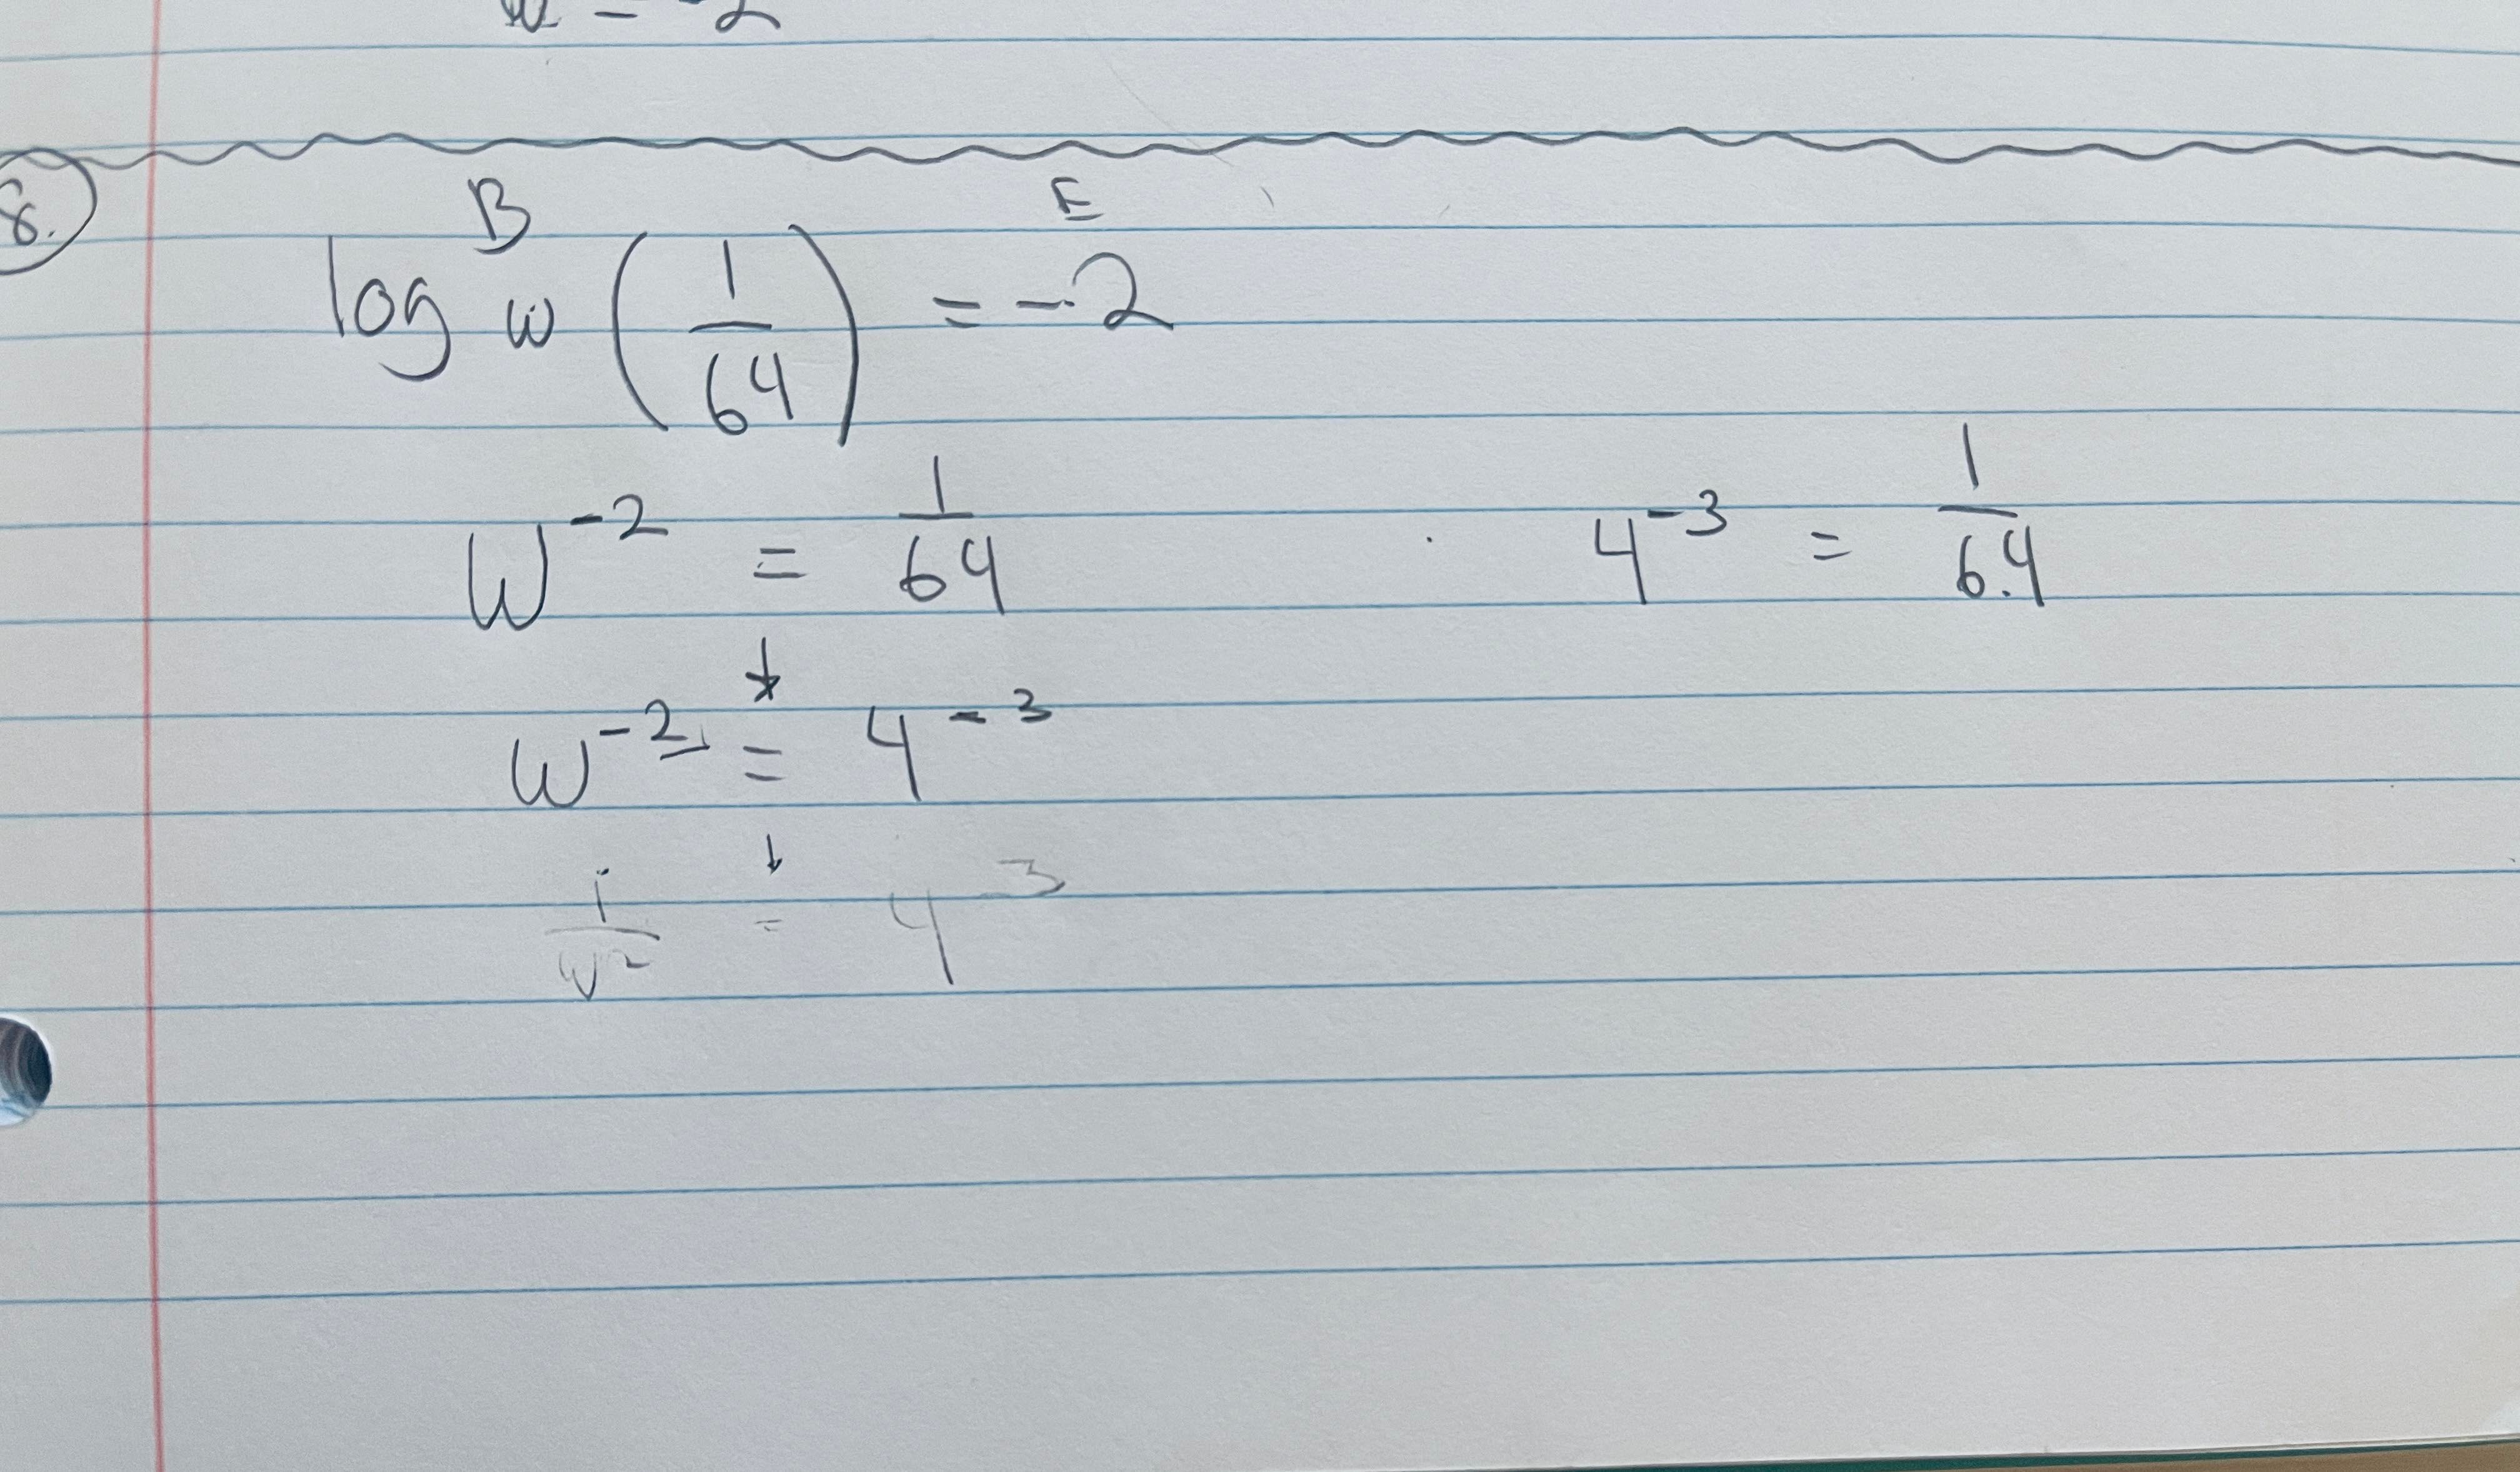 w = -2
8.
B E
log w (1/64) = -2
w^-2 = 1/64 4^-3 = 1/64
↓
w^-2 = 4^-3
↓
1/w^2 = 4^-3